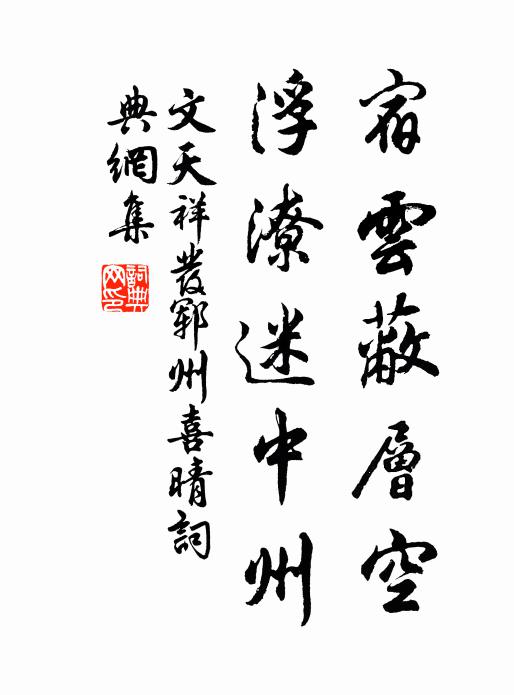 宿雲蔽層空
浮潦迷中州
文天祥發鄆州喜晴詞
典網集
詞典
网印